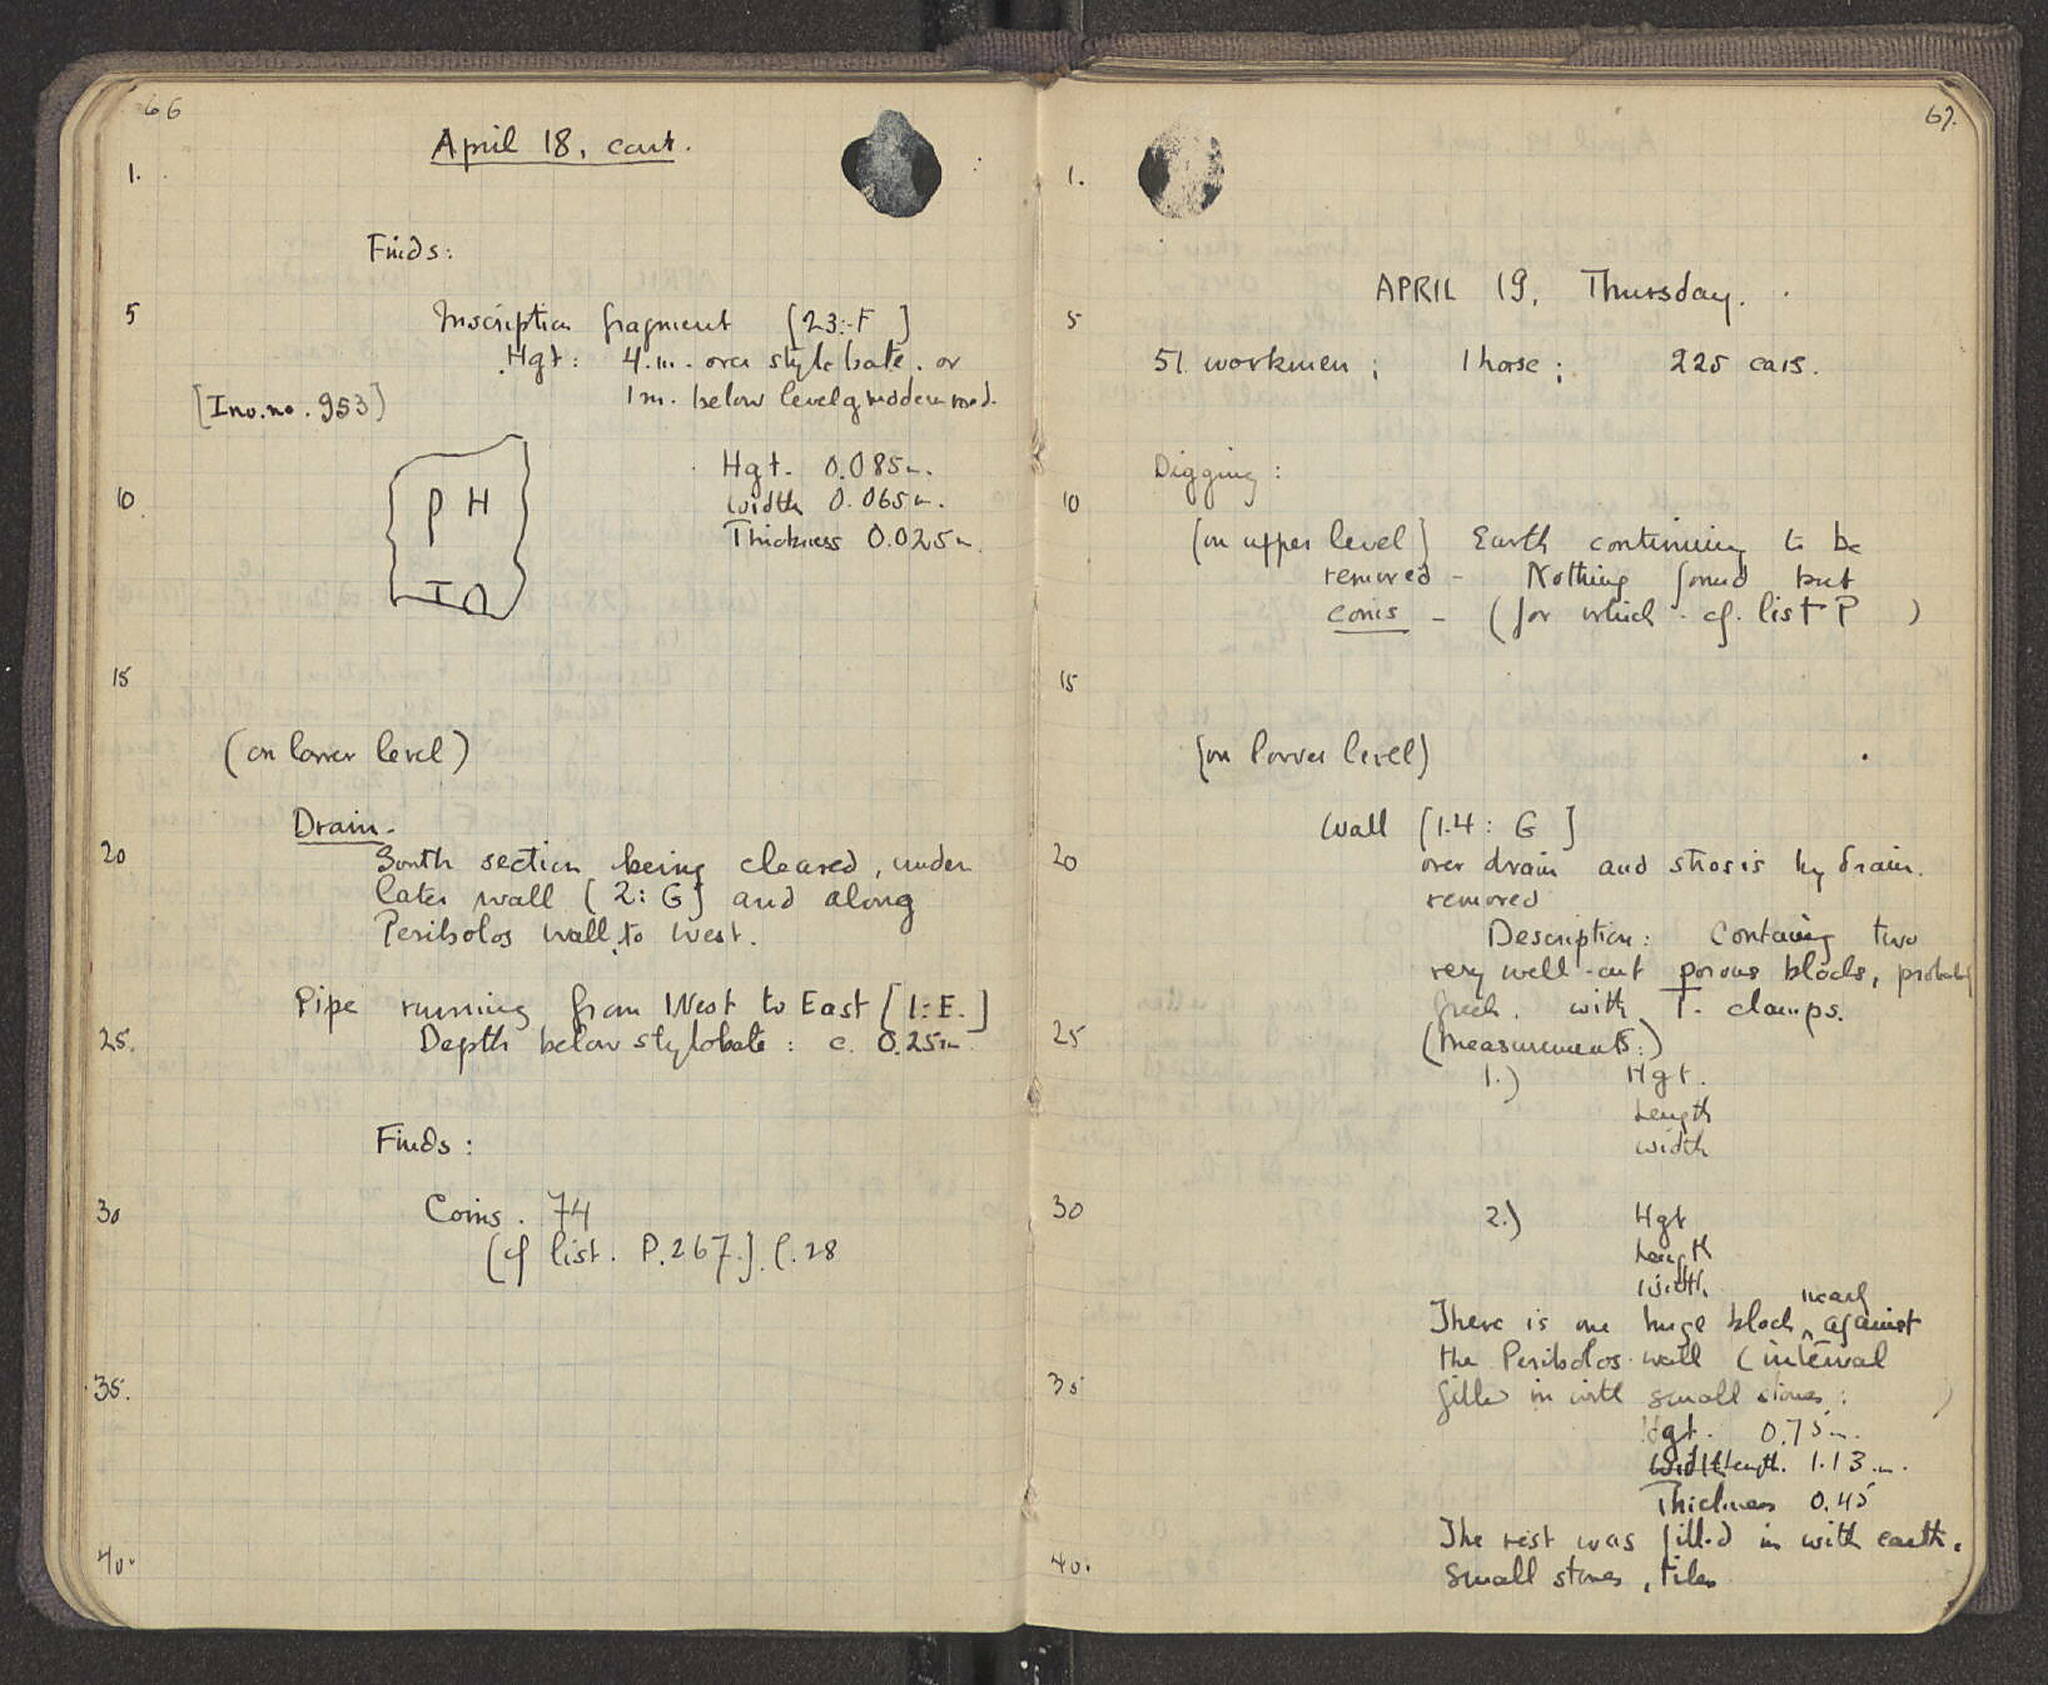 66
April 18, cont.
1.
Finds:
5
Inscription fragment [23:-F ]
Hgt: 4.m. over stylobate. or
1m. below level of modern road.
[Inv.no. 953]
Hgt. 0.085m.
10.
Width 0.065m.
Thickness 0.025m.
P H
I Ω
15
(on lower level)
Drain.
20
South section being cleared, under
later wall [2: G] and along
Peribolos wall, to west.
Pipe running from West to East [1:E.]
25.
Depth below stylobate: c. 0.25m.
Finds:
30
Coins. 74
(cf list. P.267.] l.28
35.
40.
67.
1.
APRIL 19, Thursday.
5
51. workmen; 1 horse; 225 cars.
Digging:
10
(on upper level] Earth continuing to be
removed - Nothing found but
coins - (for which - cf. list P )
15
(on lower level)
Wall [1.4: G ]
20
over drain and strosis by drain.
removed
Description: Containing two
very well-cut porous blocks, probably
Greek. with T- clamps.
25
(Measurements:)
1.) Hgt.
Length
Width
30
2.) Hgt
Length
Width
There is one huge block nearly against
the Peribolos wall (interval
35
filled in with small stones: )
Hgt. 0.75m.
Width Length. 1.13m.
Thickness 0.45
The rest was filled in with earth,
40.
small stones, tiles